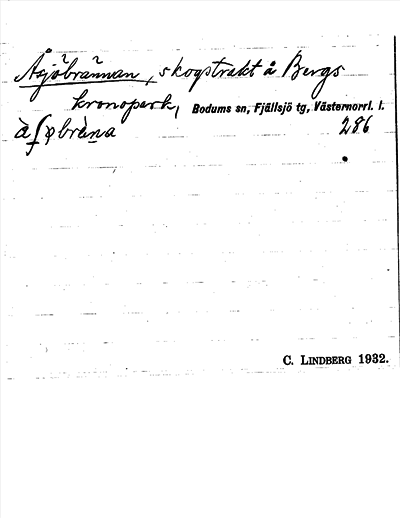 Åsjöbrännan, skogstrakt å Bergs
kronopark, Bodums sn, Fjällsjö tg, Västernorrl. l.
286
C. LINDBERG 1932.